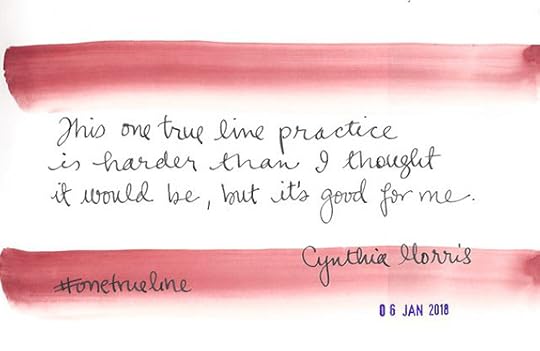 This one true line practice
is harder than I thought
it would be, but it's good for me.
Cynthia Morris
#onetrueline
06 JAN 2018